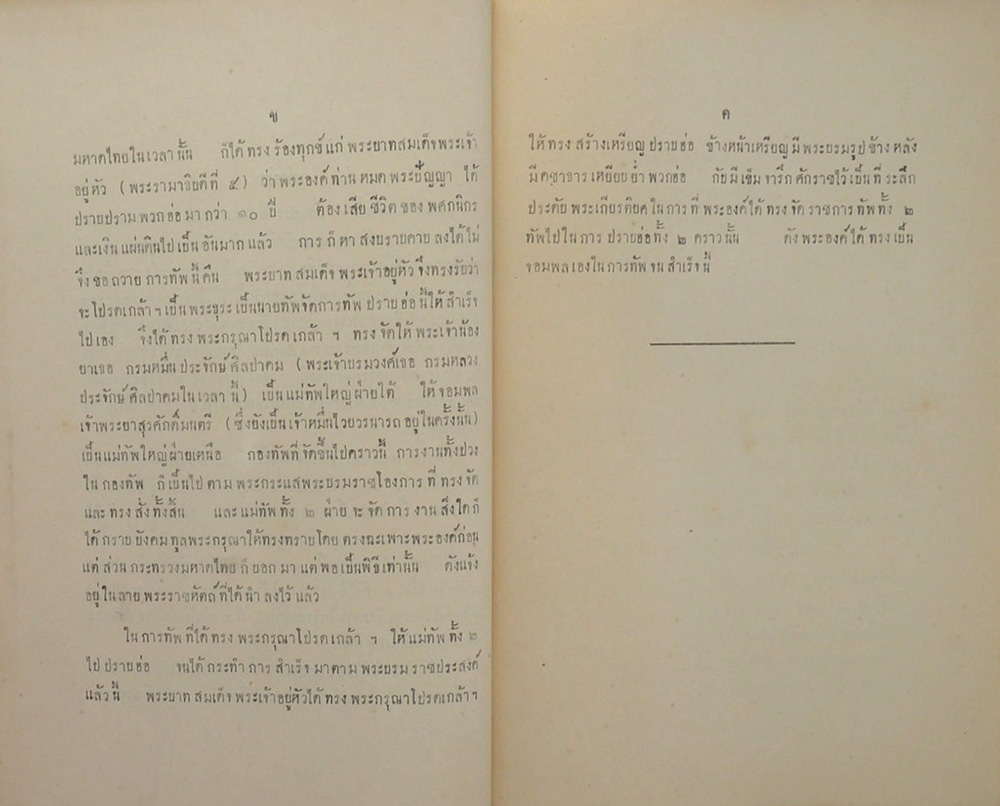 ข
มหาดไทยในเวลานั้น ก็ได้ทรงร้องทุกข์แก่ พระบาทสมเด็จพระเจ้า
อยู่หัว (พระรามาธิบดีที่ ๕) ว่าพระองค์ท่านหมดพระปัญญา ได้
ปราบปรามพวกฮ่อมากว่า ๑๐ ปี ต้องเสียชีวิตของพศกนิกร
และเงินแผ่นดินไปเป็นอันมากแล้ว การก็หาสงบราบคาบลงได้ไม่
จึงขอถวายการทัพนี้คืน พระบาทสมเด็จพระเจ้าอยู่หัวจึงทรงรับว่า
จะโปรดเกล้า ฯ เป็นพระธุระเป็นนายทัพจัดการทัพปราบฮ่อนี้ให้สำเร็จ
ไปเอง จึงได้ทรงพระกรุณาโปรดเกล้า ฯ ทรงจัดให้พระเจ้าน้อง
ยาเธอ กรมหมื่นประจักษ์ศิลปาคม (พระเจ้าบรมวงศ์เธอ กรมหลวง
ประจักษ์ศิลปาคมในเวลานี้) เป็นแม่ทัพใหญ่ฝ่ายใต้ ให้จอมพล
เจ้าพระยาสุรศักดิ์มนตรี (ซึ่งยังเป็นเจ้าหมื่นไวยวรนารถอยู่ในครั้งนั้น)
เป็นแม่ทัพใหญ่ฝ่ายเหนือ กองทัพที่จัดขึ้นไปคราวนี้ การงานทั้งปวง
ในกองทัพ ก็เป็นไปตามพระกระแสพระบรมราชโองการ ที่ทรงจัด
และทรงสั่งทั้งสิ้น และแม่ทัพทั้ง ๒ ฝ่าย จะจัดการงานสิ่งใดก็
ได้กราบบังคมทูลพระกรุณาให้ทรงทราบโดยตรงฉะเพาะพระองค์ก่อน
แต่ส่วนกระทรวงมหาดไทย ก็บอกมาแต่พอเป็นพิธีเท่านั้น ดังแจ้ง
อยู่ในลายพระราชหัตถ์ที่ได้นำลงไว้แล้ว
ในการทัพที่ได้ทรงพระกรุณาโปรดเกล้า ฯ ให้แม่ทัพทั้ง ๒
ไปปราบฮ่อ จนได้กระทำการสำเร็จมาตามพระบรมราชประสงค์
แล้วนี้ พระบาทสมเด็จพระเจ้าอยู่หัวได้ทรงพระกรุณาโปรดเกล้าฯ
ค
ให้ทรงสร้างเหรียญปราบฮ่อ ข้างหน้าเหรียญมีพระบรมรูป ข้างหลัง
มีคชาธารเหยียบย่ำพวกฮ่อ กับมีเข็มจารึกศักราชไว้เป็นที่ระลึก
ประดับพระเกียรติยศในการที่พระองค์ได้ทรงจัดราชการทัพทั้ง ๒
ทัพไปในการปราบฮ่อทั้ง ๒ คราวนั้น ดังพระองค์ได้ทรงเป็น
จอมพลเองในการทัพจนสำเร็จนี้